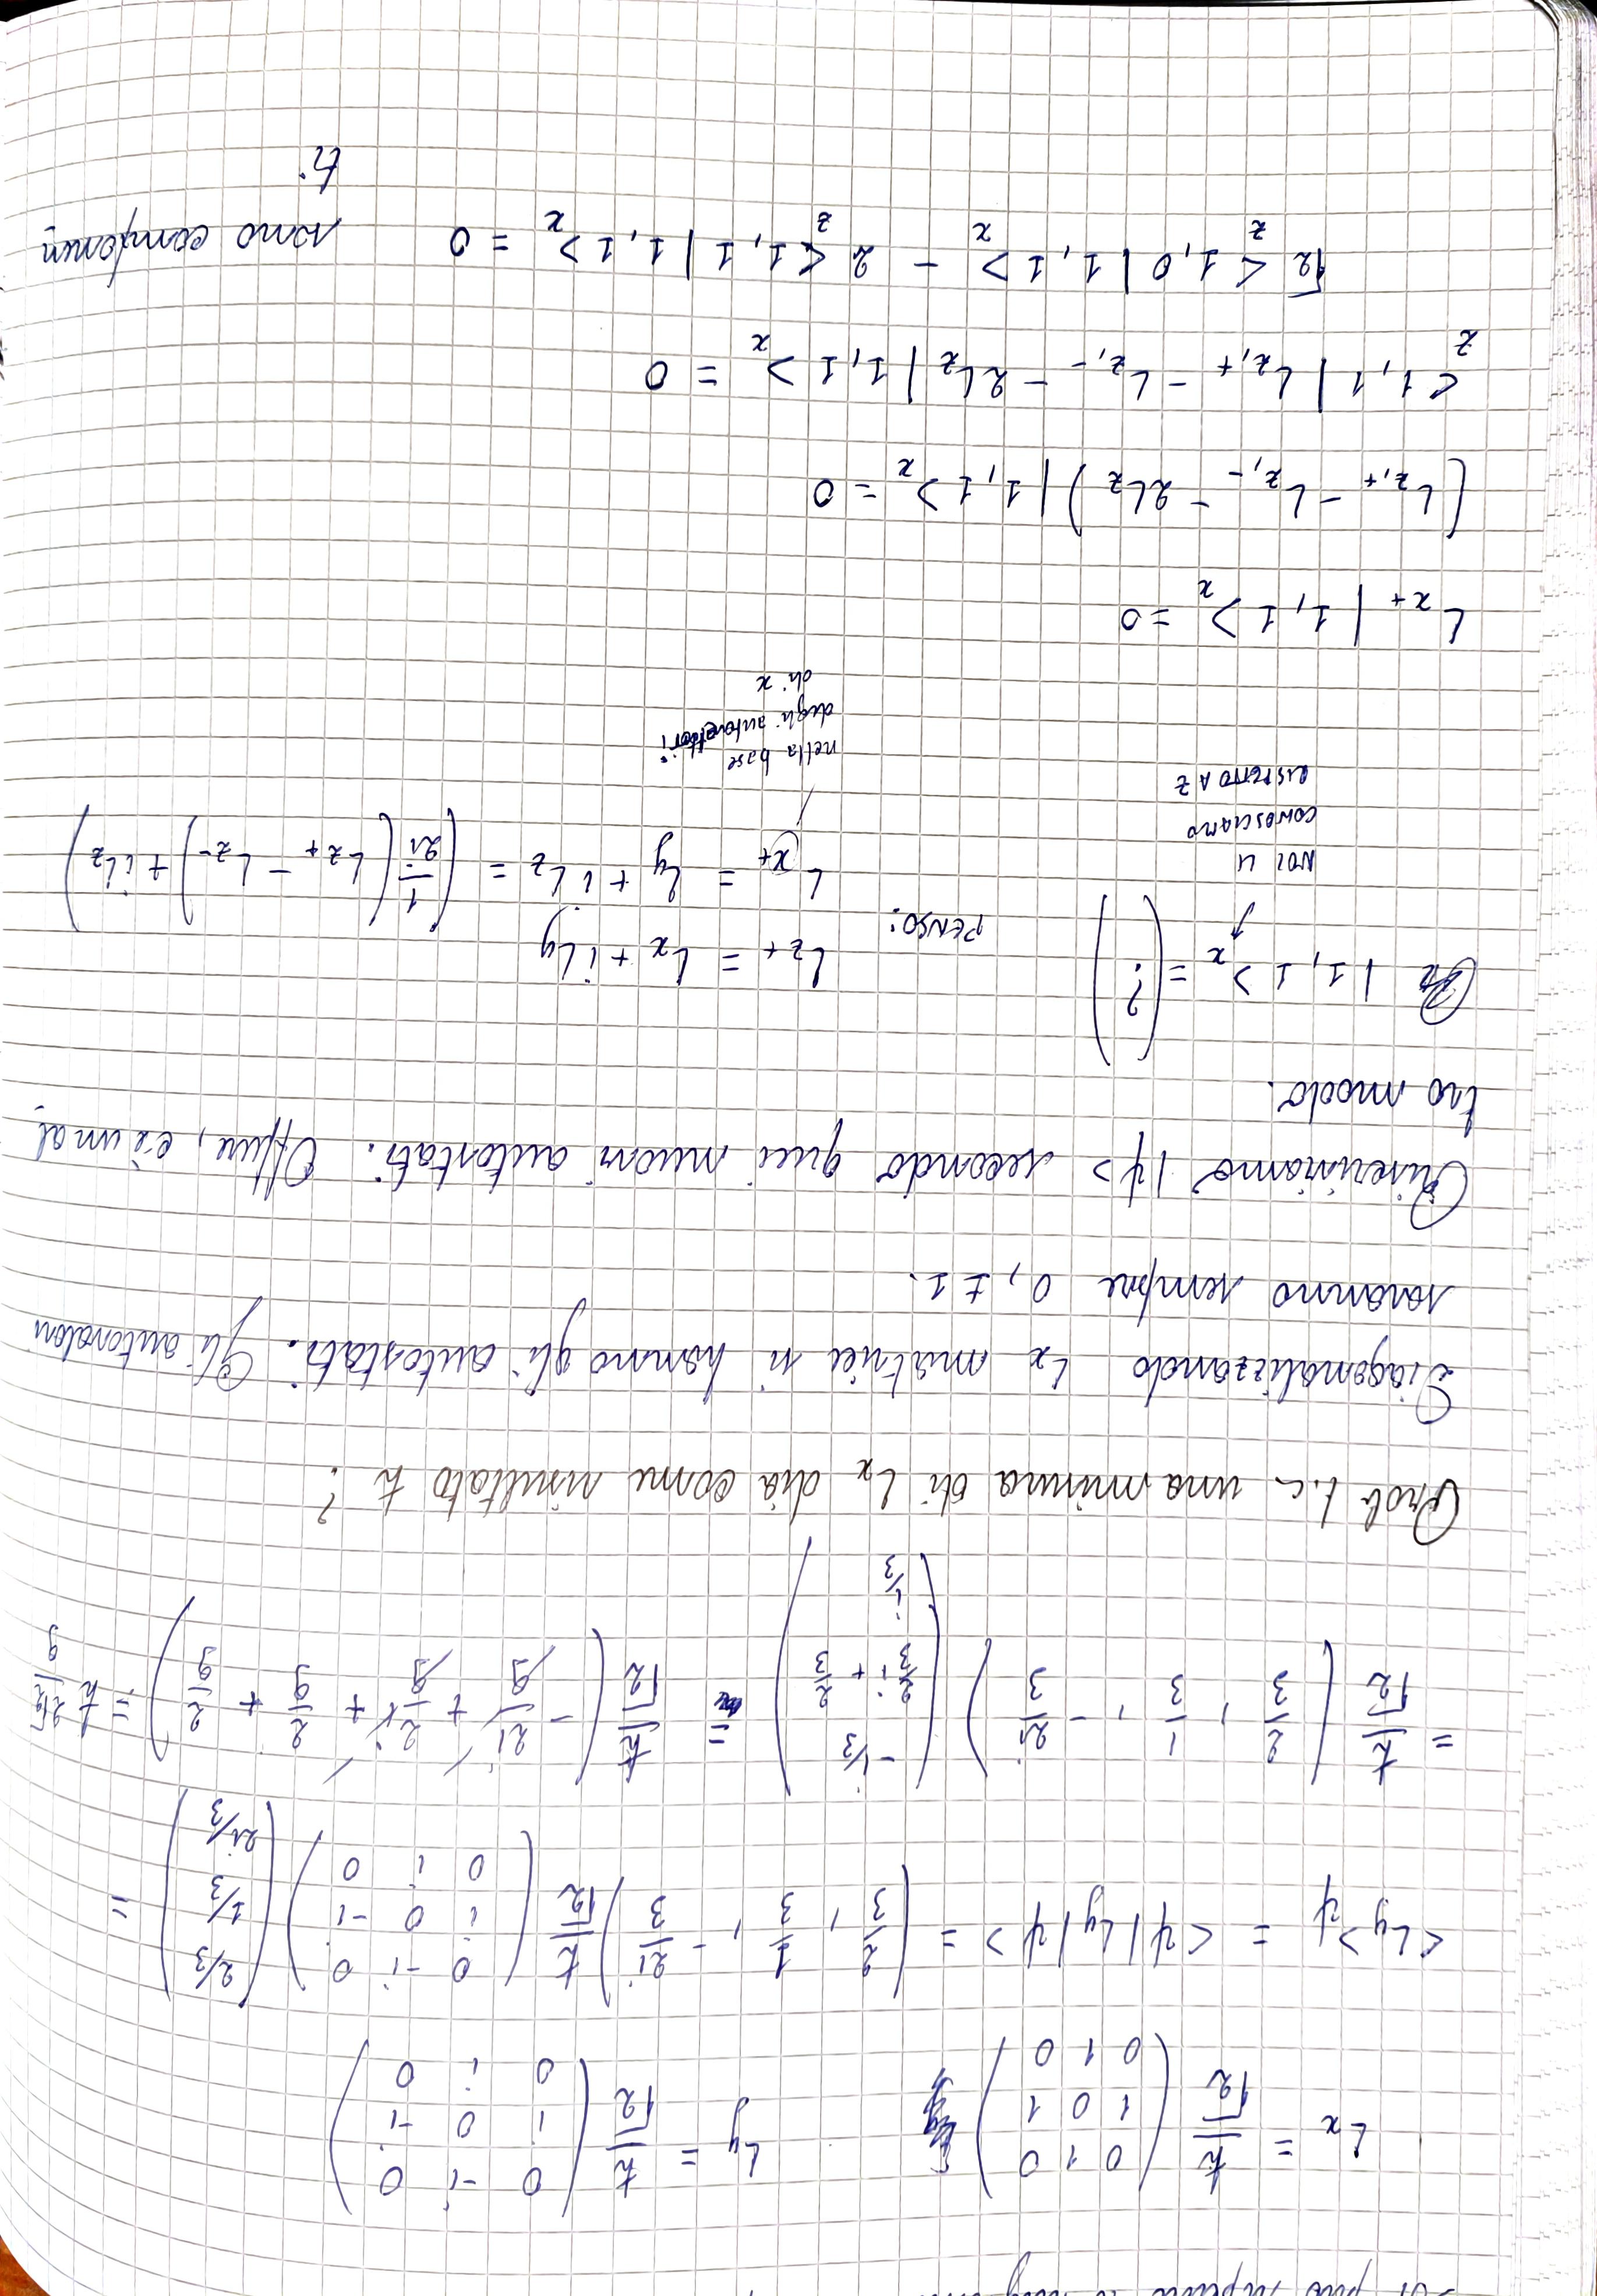 L_x = ħ/√2 (0 1 0 / 1 0 1 / 0 1 0) L_y = ħ/√2 (0 -i 0 / i 0 -i / 0 i 0)
<L_y>_ψ = <ψ|L_y|ψ> = (2/3, 1/3, -2i/3) ħ/√2 (0 -i 0 / i 0 -i / 0 i 0) (2/3 / 1/3 / 2i/3) =
= ħ/√2 (2/3, 1/3, -2i/3) (-i/3 / 2i/3 + 2/3 / i/3) = ħ/√2 (-2i/9 + 2i/9 + 2/9 + 2/9) = ħ 2√2/9
Prob t.c. una misura di L_x dia come risultato ħ?
Diagonalizzando L_x matrice si hanno gli autostati. Gli autovalori
saranno sempre 0, ±1.
Riscriviamo |ψ> secondo quei nuovi autostati. Oppure, c'è un al-
tro modo.
|1,1>_x = (?) PENSO: L_z+ = L_x + iL_y
L_x+ = L_y + iL_z = (1/2i (L_z+ - L_z-) + iL_z)
NOI LI
CONOSCIAMO
RISPETTO A Z
nella base
degli autovettori
di x
L_x+ |1,1>_x = 0
(L_z,+ - L_z,- - 2L_z) |1,1>_x = 0
_z<1,1| L_z,+ - L_z,- - 2L_z |1,1>_x = 0
√2 _z<1,0|1,1>_x - 2 _z<1,1|1,1>_x = 0 sono componen
ti